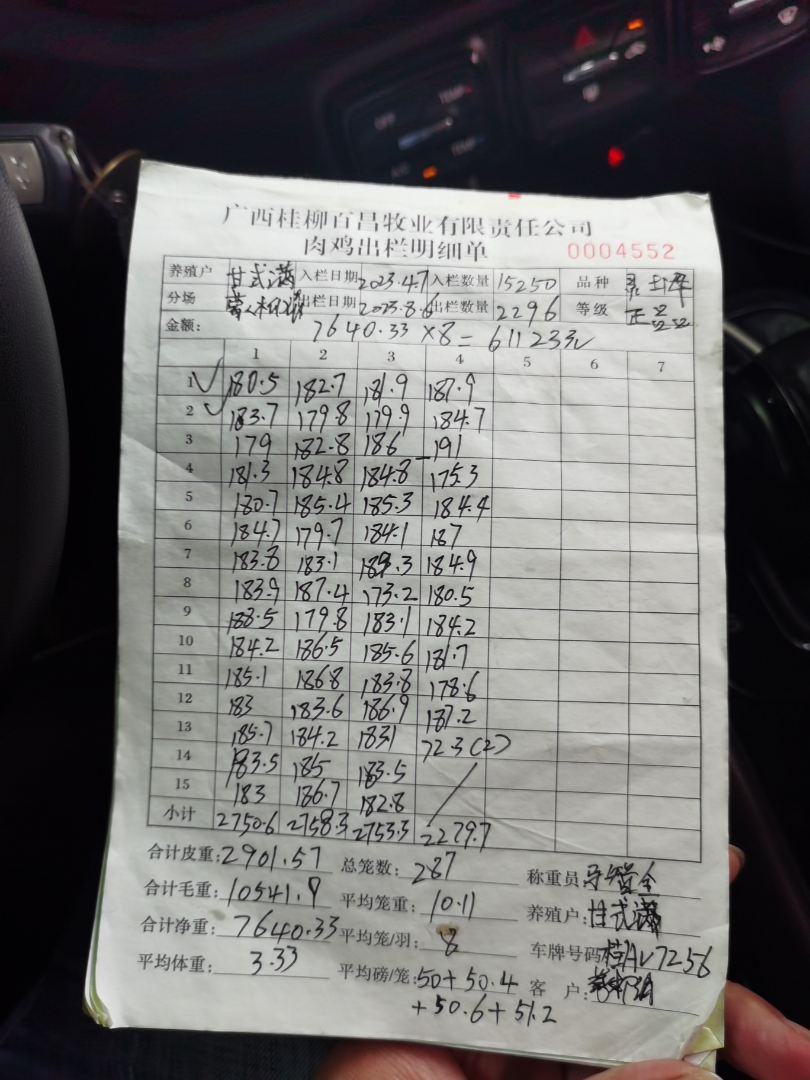 广西桂柳百昌牧业有限责任公司
肉鸡出栏明细单 0004552
养殖户 甘式满 入栏日期 2023.4.7 入栏数量 15250 品种
分场 出栏日期 2023.8.6 出栏数量 2296 等级 正
金额: 7640.33×8=61123元
1 2 3 4 5 6 7
1 180.5 182.7 181.9 187.9
2 183.7 179.8 179.9 184.7
3 179 182.8 186 191
4 181.3 184.8 184.8 175.3
5 180.7 185.4 185.3 184.4
6 184.7 179.7 184.1 187
7 183.8 183.1 189.3 184.9
8 183.9 187.4 173.2 180.5
9 188.5 179.8 183.1 184.2
10 184.2 186.5 185.6 181.7
11 185.1 186.8 183.8 178.6
12 183 183.6 186.9 187.2
13 185.7 184.2 183.1 72.3(2)
14 183.5 185 183.5
15 183 186.7 182.8
小计 2750.6 2758.3 2753.3 2279.7
合计皮重: 2901.57 总笼数: 287 称重员
合计毛重: 10541.9 平均笼重: 10.11 养殖户: 甘式满
合计净重: 7640.33 平均笼/羽: 8 车牌号码 桂AV7256
平均体重: 3.33 平均磅/笼: 50+50.4 客户:
+50.6+51.2